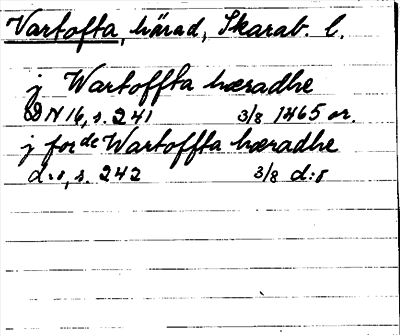 Vartofta, härad, Skarab. l.
j Wartoffta hæradhe
DN 16, s. 241 3/8 1465 or.
j forde Wartoffta hæradhe
d:o, s. 242 3/8 d:o